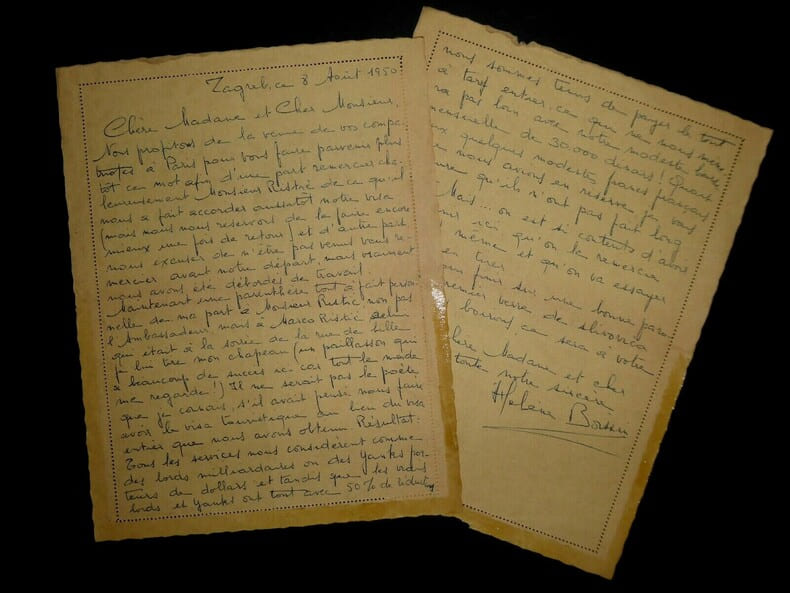 Zagreb, ce 8 Août 1950
Chère Madame et Cher Monsieur,
Nous profitons de la venue de vos compa-
triotes à Paris pour vous faire parvenir plus
tôt ce mot afin d'une part remercier cha-
leureusement Monsieur Ristić de ce qu'il
nous a fait accorder aussitôt notre visa
(mais nous nous réservons de le faire encore
mieux une fois de retour) et d'autre part
nous excuser de n'être pas venus vous re-
mercier avant notre départ, mais vraiment
nous avons été débordés de travail.
Maintenant une parenthèse tout à fait person-
nelle de ma part à Monsieur Ristić non pas
l'Ambassadeur, mais à Marco Ristić celui
qui était à la soirée de la rue de Lille
je lui tire mon chapeau (un paillasson qui
a beaucoup de succès ici car tout le monde
me regarde!) Il ne serait pas le poète
que je connais, s'il avait pensé nous faire
avoir le visa touristique au lieu du visa
entier que nous avons obtenu Résultat:
Tous les services nous considèrent comme
des lords milliardaires ou des Yankees por-
teurs de dollars et tandis que les vrais
lords et Yankees ont tout avec 50% de réduction
nous sommes tenus de payer le tout
à tarif entier, ce qui ne nous mène
pas loin avec notre modeste
mensuelle de 30.000 dinars! Quant
aux quelques modestes francs français
que nous avions en réserve je vous
assure qu'ils n'ont pas fait long
Mais... on est si contents d'être
ici, qu'on le remercie
même et qu'on va essayer
en tirer sur une bonne
verre de slivovica
boirons ce sera à votre
Chère Madame et cher
toute notre sincère
Helene